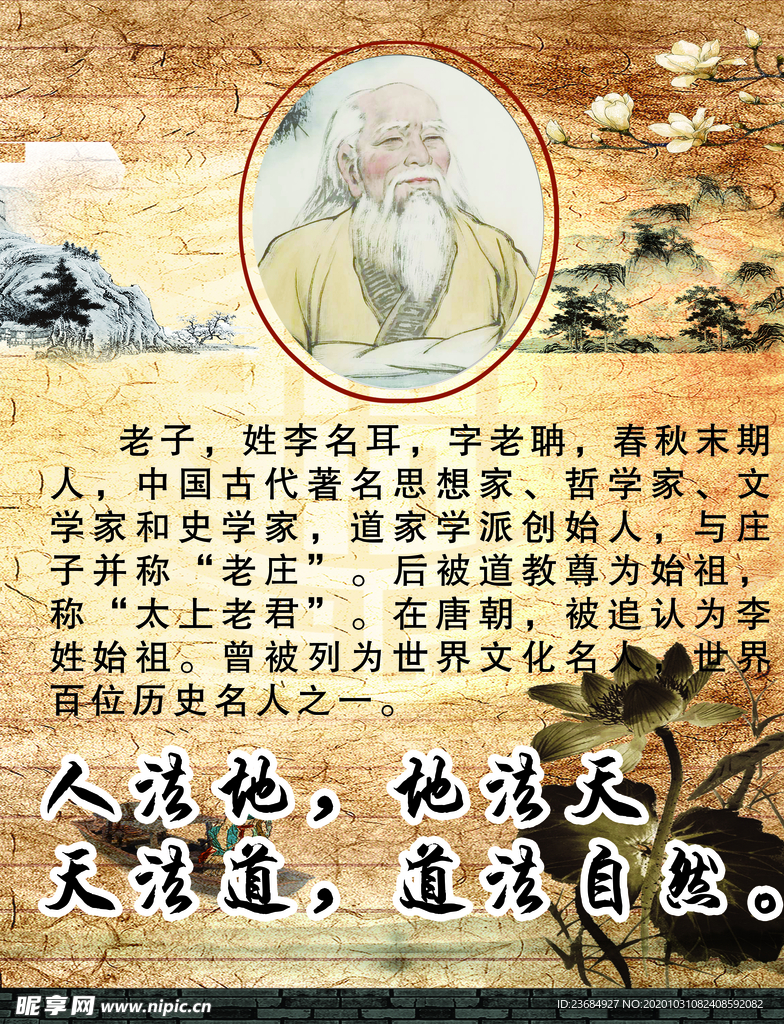 老子，姓李名耳，字老聃，春秋末期
人，中国古代著名思想家、哲学家、文
学家和史学家，道家学派创始人，与庄
子并称“老庄”。后被道教尊为始祖，
称“太上老君”。在唐朝，被追认为李
姓始祖。曾被列为世界文化名人，世界
百位历史名人之一。
人法地，地法天
天法道，道法自然。
昵享网 www.nipic.cn
ID:23684927 NO:20201031082408592082